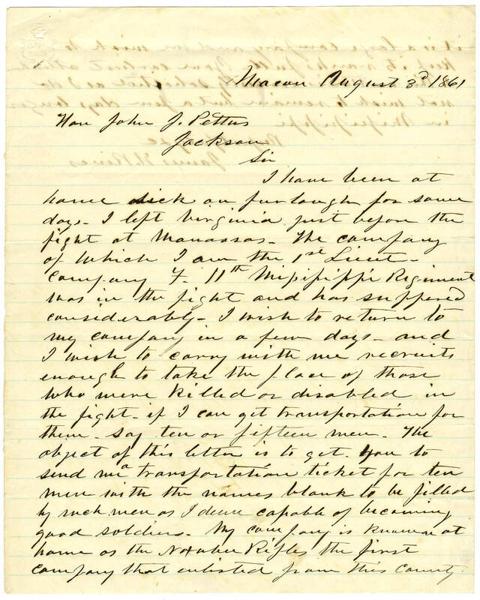 Macon August 3d 1861
Hon John J. Pettus
Jackson
Sir
I have been at
home sick on furlough for some
days - I left Virginia just before the
fight at Manassas - The company
of which I am the 1st Lieut -
Company F. 11th Mississippi Regiment
was in the fight and has suffered
considerably - I wish to return to
my company in a few days - and
I wish to carry with me recruits
enough to take the place of those
who were killed or disabled in
the fight - if I can get transportation for
them - say ten or fifteen men. The
object of this letter is to get you to
send me a transportation ticket for ten
men with the names blank to be filled
by such men as I deem capable of becoming
good soldiers. My company is known at
home as the Noxubee Rifles the first
company that enlisted from this County.